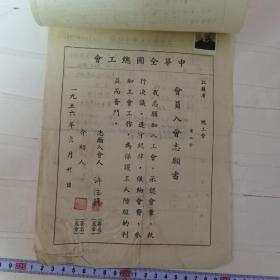 中華全國總工會
江蘇省　總工會
會員入會志願書
我志願加入工會，承認會章，執
行決議，遵守紀律，繳納會費，參
加工會工作，為保護工人階級的利
益而奮鬥。
志願入會人
介紹人
一九五六年　月　日